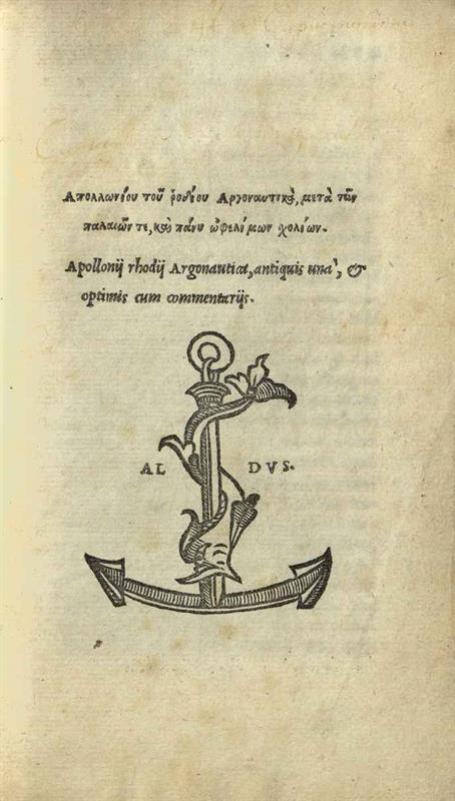 Απολλωνίου τοῦ ῥοδίου Αργοναυτικὰ, μετὰ τῶν
παλαιῶν τε, καὶ πάνυ ὠφελίμων σχολίων.
Apollonij rhodij Argonautica, antiquis unà, &
optimis cum commentarijs.
AL DVS.